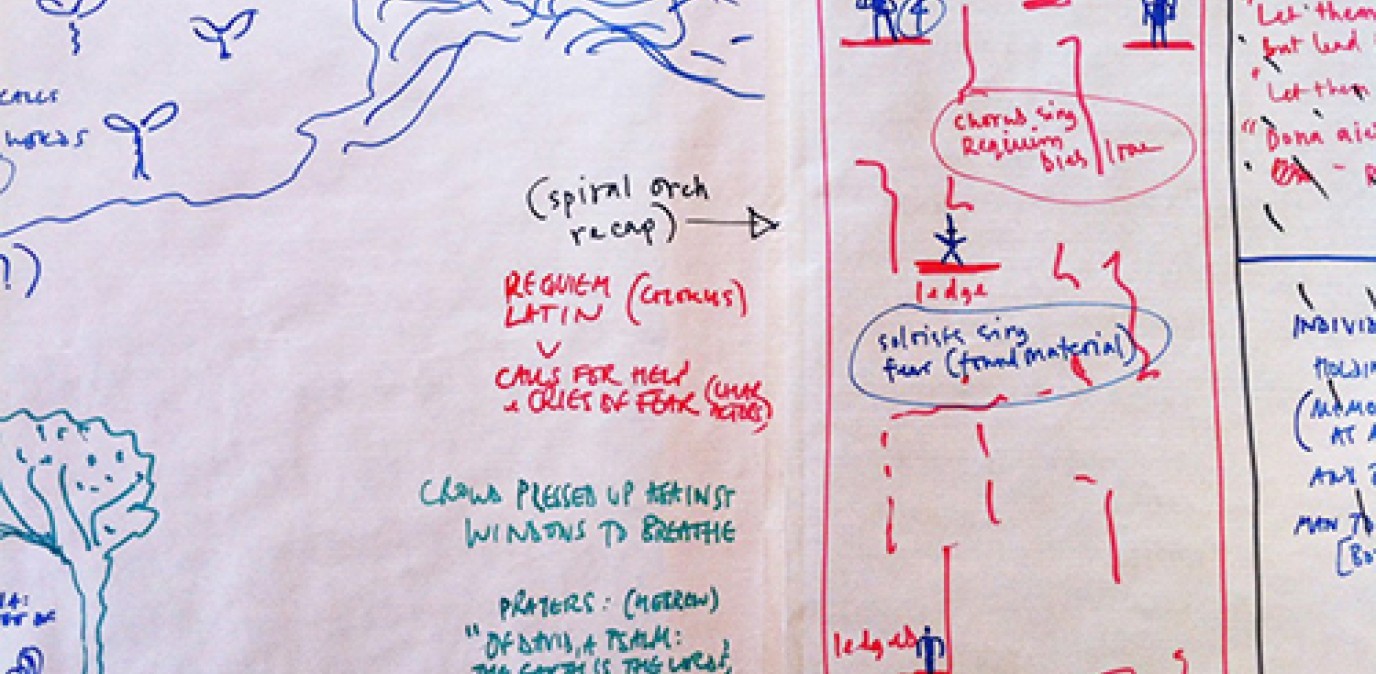 CALLS
WORDS
?)
(spiral orch
recap)
REQUIEM (CHORUS)
LATIN
CALLS FOR HELP
+ CRIES OF FEAR (CHAR
ACTORS)
CROWD PRESSED UP AGAINST
WINDOWS TO BREATHE
PRAYERS: (HEBREW)
"OF DAVID, A PSALM:
THE EARTH IS THE LORDS,
4
chorus sing
Requiem
Dies Irae
ledge
soloists sing
fear (found material)
ledges
"Let them
but lead
"Let them
"Dona
INDIVID
HOLDIN
(MEMO
AT A
AND
MAN TO
[Bo